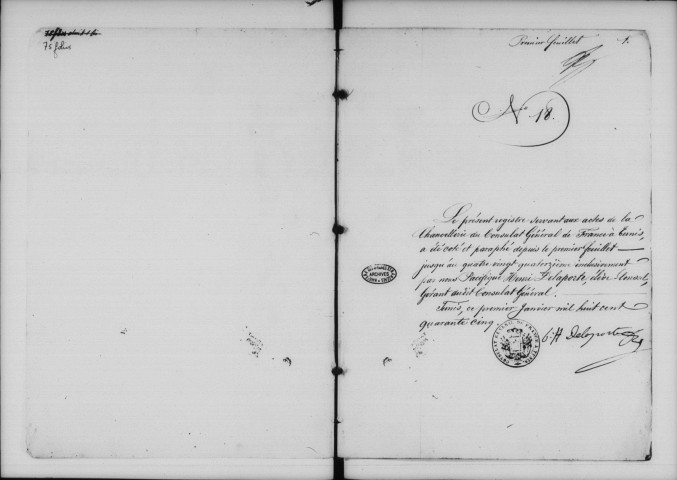 75 folios
Premier feuillet 1.
N° 18.
Le présent registre servant aux actes de la
Chancellerie du Consulat Général de France à Tunis,
a été coté et paraphé depuis le premier feuillet
jusqu'au quatre vingt quatorzième inclusivement
par nous Pacifique Henri Delaporte, élève Consul,
Gérant du dit Consulat Général.
Tunis, ce premier Janvier mil huit cent
quarante cinq
P. H Delaporte
ARCHIVES